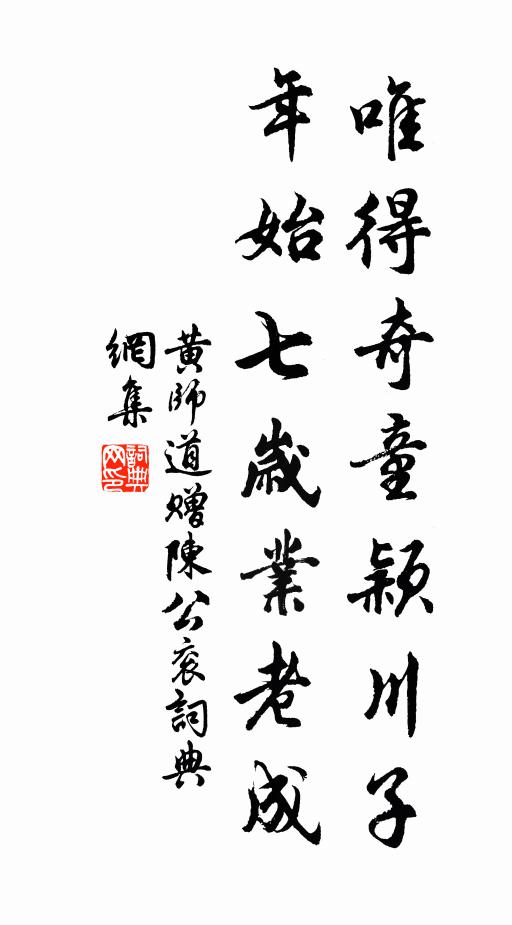 唯得奇童颖川子
年始七歲業老成
黄師道贈陳公衮詞典
網集
詞典
网印